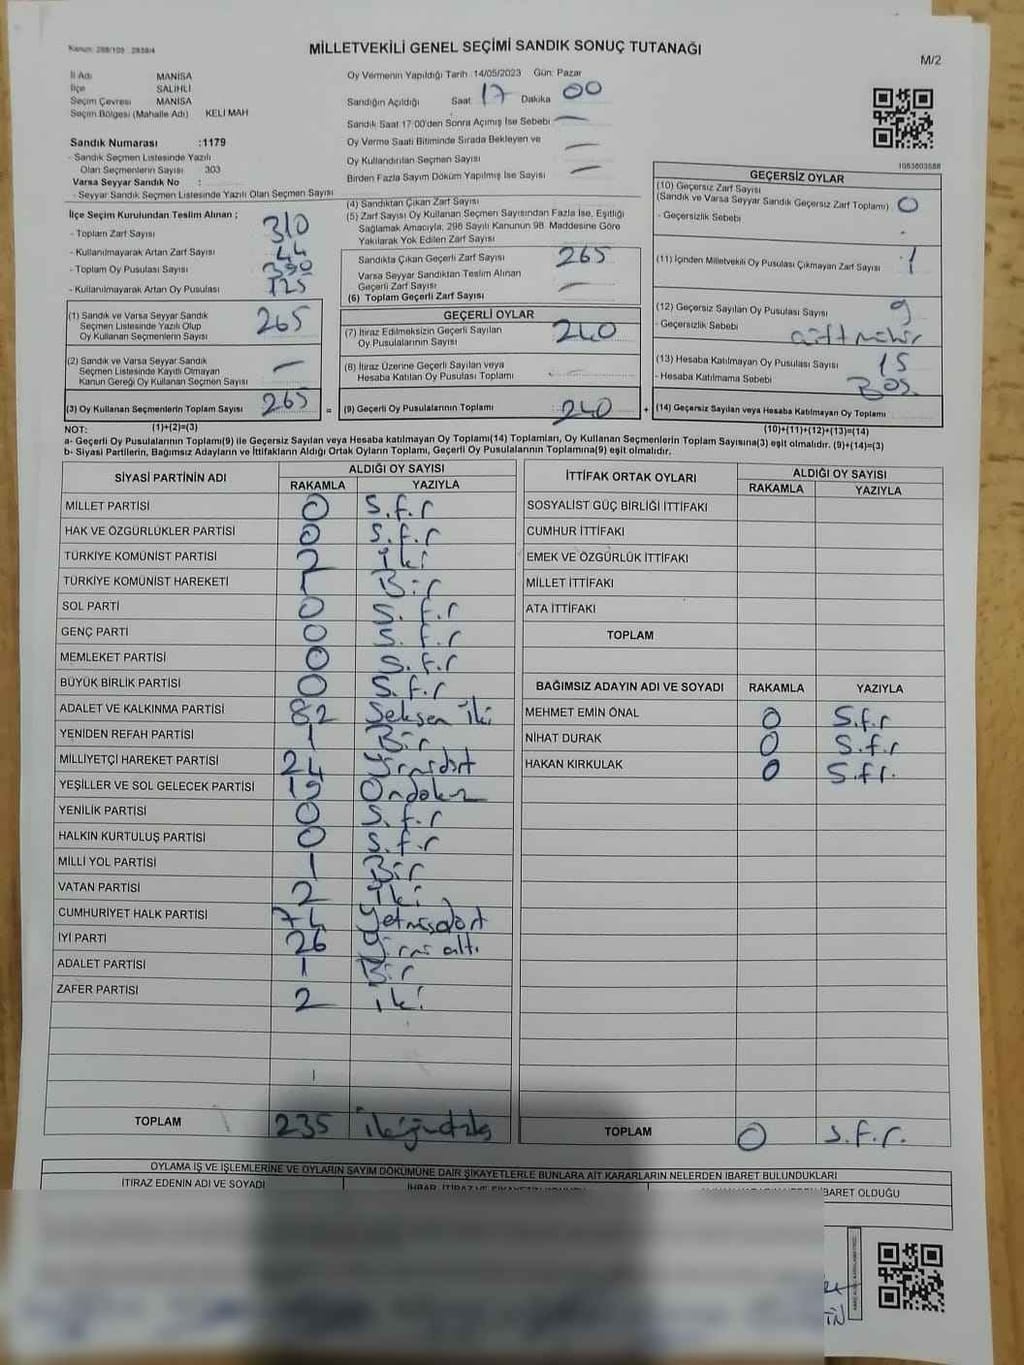 Kanun: 298/105 2839/4
MİLLETVEKİLİ GENEL SEÇİMİ SANDIK SONUÇ TUTANAĞI
M/2
İl Adı MANİSA
İlçe SALİHLİ
Seçim Çevresi MANİSA
Seçim Bölgesi (Mahalle Adı) KELİ MAH
Oy Vermenin Yapıldığı Tarih :14/05/2023 Gün: Pazar
Sandığın Açıldığı Saat 17 Dakika 00
Sandık Saat 17:00'den Sonra Açımış İse Sebebi —
Oy Verme Saati Bitiminde Sırada Bekleyen ve
Oy Kullandırılan Seçmen Sayısı —
Birden Fazla Sayım Döküm Yapılmış İse Sayısı —
1053603588
Sandık Numarası :1179
- Sandık Seçmen Listesinde Yazılı
Olan Seçmenlerin Sayısı 303
Varsa Seyyar Sandık No :
- Seyyar Sandık Seçmen Listesinde Yazılı Olan Seçmen Sayısı
İlçe Seçim Kurulundan Teslim Alınan ;
- Toplam Zarf Sayısı 310
- Kullanılmayarak Artan Zarf Sayısı 44
- Toplam Oy Pusulası Sayısı 390
- Kullanılmayarak Artan Oy Pusulası 125
(1) Sandık ve Varsa Seyyar Sandık
Seçmen Listesinde Yazılı Olup
Oy Kullanan Seçmenlerin Sayısı 265
(2) Sandık ve Varsa Seyyar Sandık
Seçmen Listesinde Kayıtlı Olmayan
Kanun Gereği Oy Kullanan Seçmen Sayısı —
(3) Oy Kullanan Seçmenlerin Toplam Sayısı 265 =
(4) Sandıktan Çıkan Zarf Sayısı
(5) Zarf Sayısı Oy Kullanan Seçmen Sayısından Fazla İse, Eşitliği
Sağlamak Amacıyla, 298 Sayılı Kanunun 98. Maddesine Göre
Yakılarak Yok Edilen Zarf Sayısı
Sandıkta Çıkan Geçerli Zarf Sayısı 265
Varsa Seyyar Sandıktan Teslim Alınan
Geçerli Zarf Sayısı —
(6) Toplam Geçerli Zarf Sayısı
GEÇERLİ OYLAR
(7) İtiraz Edilmeksizin Geçerli Sayılan
Oy Pusulalarının Sayısı 240
(8) İtiraz Üzerine Geçerli Sayılan veya
Hesaba Katılan Oy Pusulası Toplamı —
(9) Geçerli Oy Pusulalarının Toplamı 240 +
GEÇERSİZ OYLAR
(10) Geçersiz Zarf Sayısı
(Sandık ve Varsa Seyyar Sandık Geçersiz Zarf Toplamı) 0
- Geçersizlik Sebebi
(11) İçinden Milletvekili Oy Pusulası Çıkmayan Zarf Sayısı 1
(12) Geçersiz Sayılan Oy Pusulası Sayısı 9
- Geçersizlik Sebebi çift mühür
(13) Hesaba Katılmayan Oy Pusulası Sayısı 15
- Hesaba Katılmama Sebebi Boş
(14) Geçersiz Sayılan veya Hesaba Katılmayan Oy Toplamı
NOT: (1)+(2)=(3) (10)+(11)+(12)+(13)=(14)
a- Geçerli Oy Pusulalarının Toplamı(9) ile Geçersiz Sayılan veya Hesaba katılmayan Oy Toplamı(14) Toplamları, Oy Kullanan Seçmenlerin Toplam Sayısına(3) eşit olmalıdır. (9)+(14)=(3)
b- Siyasi Partilerin, Bağımsız Adayların ve İttifakların Aldığı Ortak Oyların Toplamı, Geçerli Oy Pusulalarının Toplamına(9) eşit olmalıdır.
SİYASİ PARTİNİN ADI ALDIĞI OY SAYISI
RAKAMLA YAZIYLA
MİLLET PARTİSİ 0 Sıfır
HAK VE ÖZGÜRLÜKLER PARTİSİ 0 Sıfır
TÜRKİYE KOMÜNİST PARTİSİ 2 İki
TÜRKİYE KOMÜNİST HAREKETİ 1 Bir
SOL PARTİ 0 Sıfır
GENÇ PARTİ 0 Sıfır
MEMLEKET PARTİSİ 0 Sıfır
BÜYÜK BİRLİK PARTİSİ 0 Sıfır
ADALET VE KALKINMA PARTİSİ 82 Seksen İki
YENİDEN REFAH PARTİSİ 1 Bir
MİLLİYETÇİ HAREKET PARTİSİ 24 Yirmidört
YEŞİLLER VE SOL GELECEK PARTİSİ 19 Ondokuz
YENİLİK PARTİSİ 0 Sıfır
HALKIN KURTULUŞ PARTİSİ 0 Sıfır
MİLLİ YOL PARTİSİ 1 Bir
VATAN PARTİSİ 2 İki
CUMHURİYET HALK PARTİSİ 74 Yetmişdört
İYİ PARTİ 26 Yirmi altı
ADALET PARTİSİ 1 Bir
ZAFER PARTİSİ 2 iki
TOPLAM 235
İTTİFAK ORTAK OYLARI ALDIĞI OY SAYISI
RAKAMLA YAZIYLA
SOSYALİST GÜÇ BİRLİĞİ İTTİFAKI
CUMHUR İTTİFAKI
EMEK VE ÖZGÜRLÜK İTTİFAKI
MİLLET İTTİFAKI
ATA İTTİFAKI
TOPLAM
BAĞIMSIZ ADAYIN ADI VE SOYADI RAKAMLA YAZIYLA
MEHMET EMİN ÖNAL 0 Sıfır
NİHAT DURAK 0 Sıfır
HAKAN KIRKULAK 0 Sıfır
TOPLAM 0 Sıfır.
OYLAMA İŞ VE İŞLEMLERİNE VE OYLARIN SAYIM DÖKÜMÜNE DAİR ŞİKAYETLERLE BUNLARA AİT KARARLARIN NELERDEN İBARET BULUNDUKLARI
İTİRAZ EDENİN ADI VE SOYADI
İBARET OLDUĞU